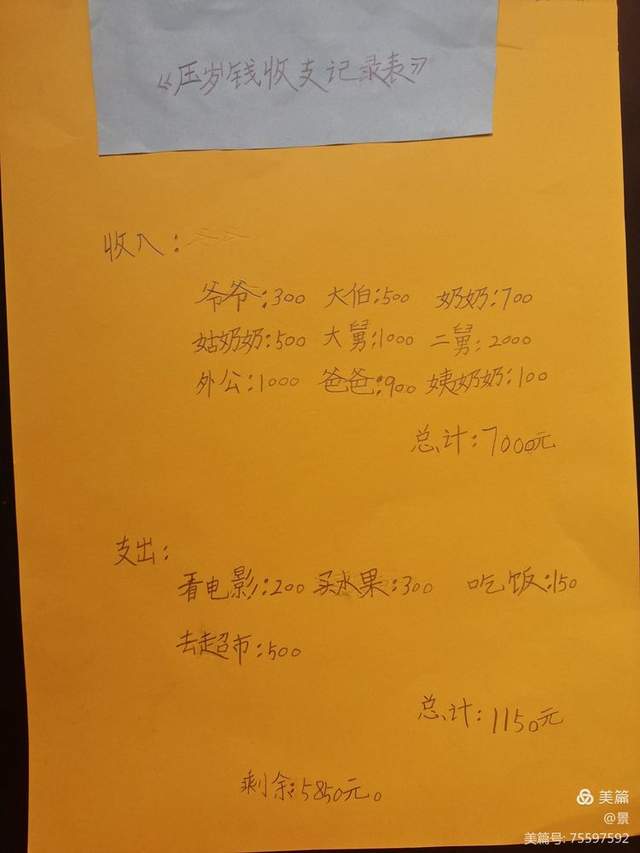 《压岁钱收支记录表》
收入:
爷爷:300 大伯:500 奶奶:700
姑奶奶:500 大舅:1000 二舅:2000
外公:1000 爸爸:900 姨奶奶:100
总计:7000元
支出:
看电影:200 买水果:300 吃饭:150
去超市:500
总计:1150元
剩余:5850元。
美篇
@景
美篇号: 75597592